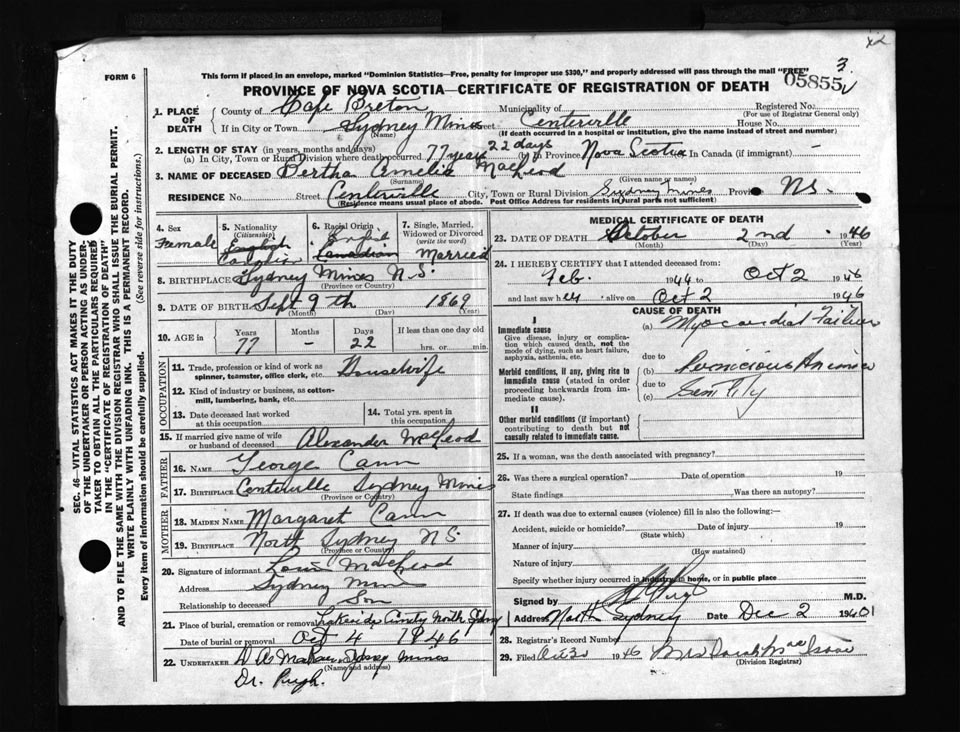 x2
3
FORM 6
This form if placed in an envelope, marked "Dominion Statistics—Free, penalty for improper use $300," and properly addressed will pass through the mail "FREE"
05855
PROVINCE OF NOVA SCOTIA—CERTIFICATE OF REGISTRATION OF DEATH
1. PLACE OF DEATH
County of Cape Breton Municipality of Registered No.
(For use of Registrar General only)
If in City or Town Sydney Mines Street Centerville House No.
(Name) (If death occurred in a hospital or institution, give the name instead of street and number)
2. LENGTH OF STAY (in years, months and days)
(a) In City, Town or Rural Division where death occurred 77 years 22 days (b) In Province Nova Scotia In Canada (if immigrant) —
3. NAME OF DECEASED Bertha Amelia MacLeod
(Surname) (Given name or names)
RESIDENCE No. Street Centerville City, Town or Rural Division Sydney Mines Province N.S.
(Residence means usual place of abode. Post Office Address for residents in rural parts not sufficient)
4. Sex Female
5. Nationality (Citizenship) English Canadian
6. Racial Origin English Canadian
7. Single, Married, Widowed or Divorced (write the word) Married
8. BIRTHPLACE Sydney Mines N.S.
(Province or Country)
9. DATE OF BIRTH Sept 9th 1869
(Month) (Day) (Year)
10. AGE in Years Months Days If less than one day old
77 – 22 hrs. or min.
OCCUPATION
11. Trade, profession or kind of work as spinner, teamster, office clerk, etc. Housewife
12. Kind of industry or business, as cotton-mill, lumbering, bank, etc.
13. Date deceased last worked at this occupation
14. Total yrs. spent in this occupation
15. If married give name of wife or husband of deceased Alexander McLeod
FATHER
16. NAME George Cann
17. BIRTHPLACE Centerville Sydney Mines
(Province or Country)
MOTHER
18. MAIDEN NAME Margaret Cann
19. BIRTHPLACE North Sydney N.S.
(Province or Country)
20. Signature of informant MacLeod
Address Sydney Mines
Relationship to deceased Son
21. Place of burial, cremation or removal Lakeside North Sydney
Date of burial or removal Oct 4 1946
22. UNDERTAKER Sydney Mines
(Name and address)
Dr. Pugh.
MEDICAL CERTIFICATE OF DEATH
23. DATE OF DEATH October 2nd 1946
(Month) (Day) (Year)
24. I HEREBY CERTIFY that I attended deceased from:
Feb. 1944 to Oct 2 1946
and last saw her alive on Oct 2 1946
CAUSE OF DEATH
I
Immediate cause
Give disease, injury or complication which caused death, not the mode of dying, such as heart failure, asphyxia, asthenia, etc.
(a) Myocardial Failure
due to
Morbid conditions, if any, giving rise to immediate cause (stated in order proceeding backwards from immediate cause).
(b) Pernicious Anemia
due to
(c) Senility
II
Other morbid conditions (if important) contributing to death but not causally related to immediate cause.
25. If a woman, was the death associated with pregnancy?
26. Was there a surgical operation? Date of operation 19
State findings Was there an autopsy?
27. If death was due to external causes (violence) fill in also the following:—
Accident, suicide or homicide? Date of injury 19
(State which)
Manner of injury
(How sustained)
Nature of injury
Specify whether injury occurred in industry, in home, or in public place
Signed by M.D.
Address North Sydney Date Dec 2 19
28. Registrar's Record Number
29. Filed 1946 Mrs Sarah MacIsaac
(Division Registrar)
SEC. 46—VITAL STATISTICS ACT MAKES IT THE DUTY
OF THE UNDERTAKER OR PERSON ACTING AS UNDER-
TAKER TO OBTAIN ALL THE PARTICULARS REQUIRED
IN THE "CERTIFICATE OF REGISTRATION OF DEATH"
AND TO FILE THE SAME WITH THE DIVISION REGISTRAR WHO SHALL ISSUE THE BURIAL PERMIT.
WRITE PLAINLY WITH UNFADING INK. THIS IS A PERMANENT RECORD.
Every item of information should be carefully supplied. (See reverse side for instructions.)